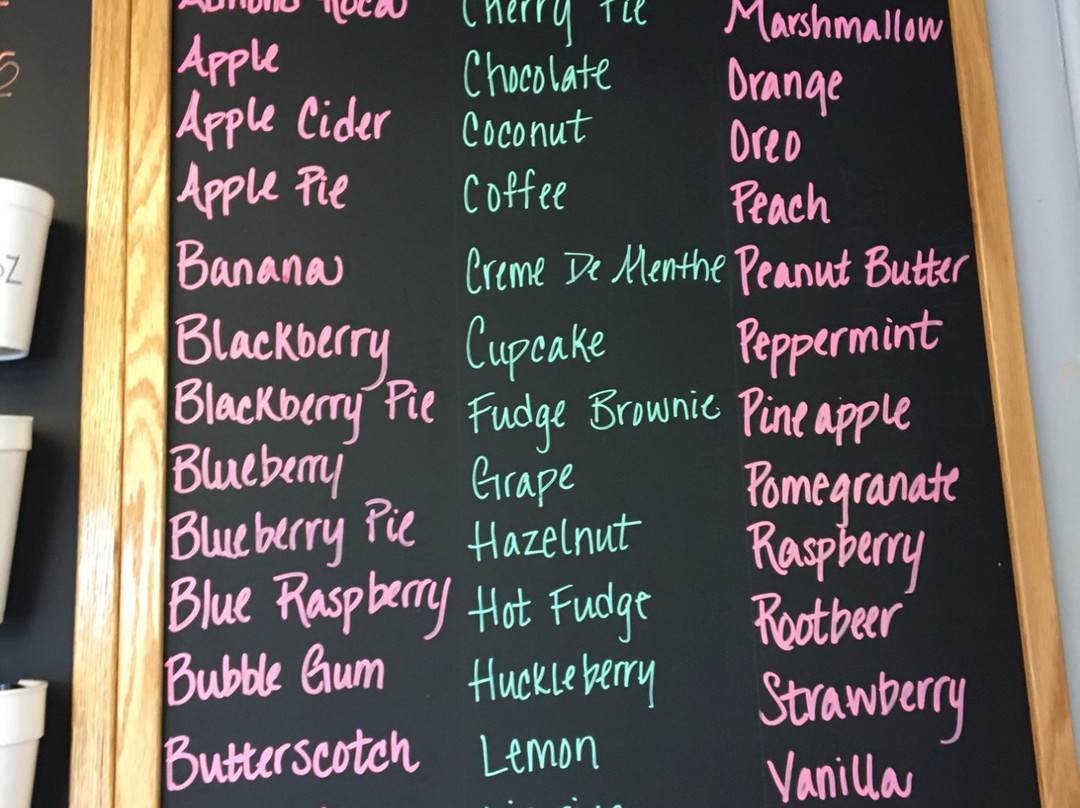 Almond Roca
Apple
Apple Cider
Apple Pie
Banana
Blackberry
Blackberry Pie
Blueberry
Blueberry Pie
Blue Raspberry
Bubble Gum
Butterscotch
Cherry Pie
Chocolate
Coconut
Coffee
Creme De Menthe
Cupcake
Fudge Brownie
Grape
Hazelnut
Hot Fudge
Huckleberry
Lemon
Marshmallow
Orange
Oreo
Peach
Peanut Butter
Peppermint
Pineapple
Pomegranate
Raspberry
Rootbeer
Strawberry
Vanilla